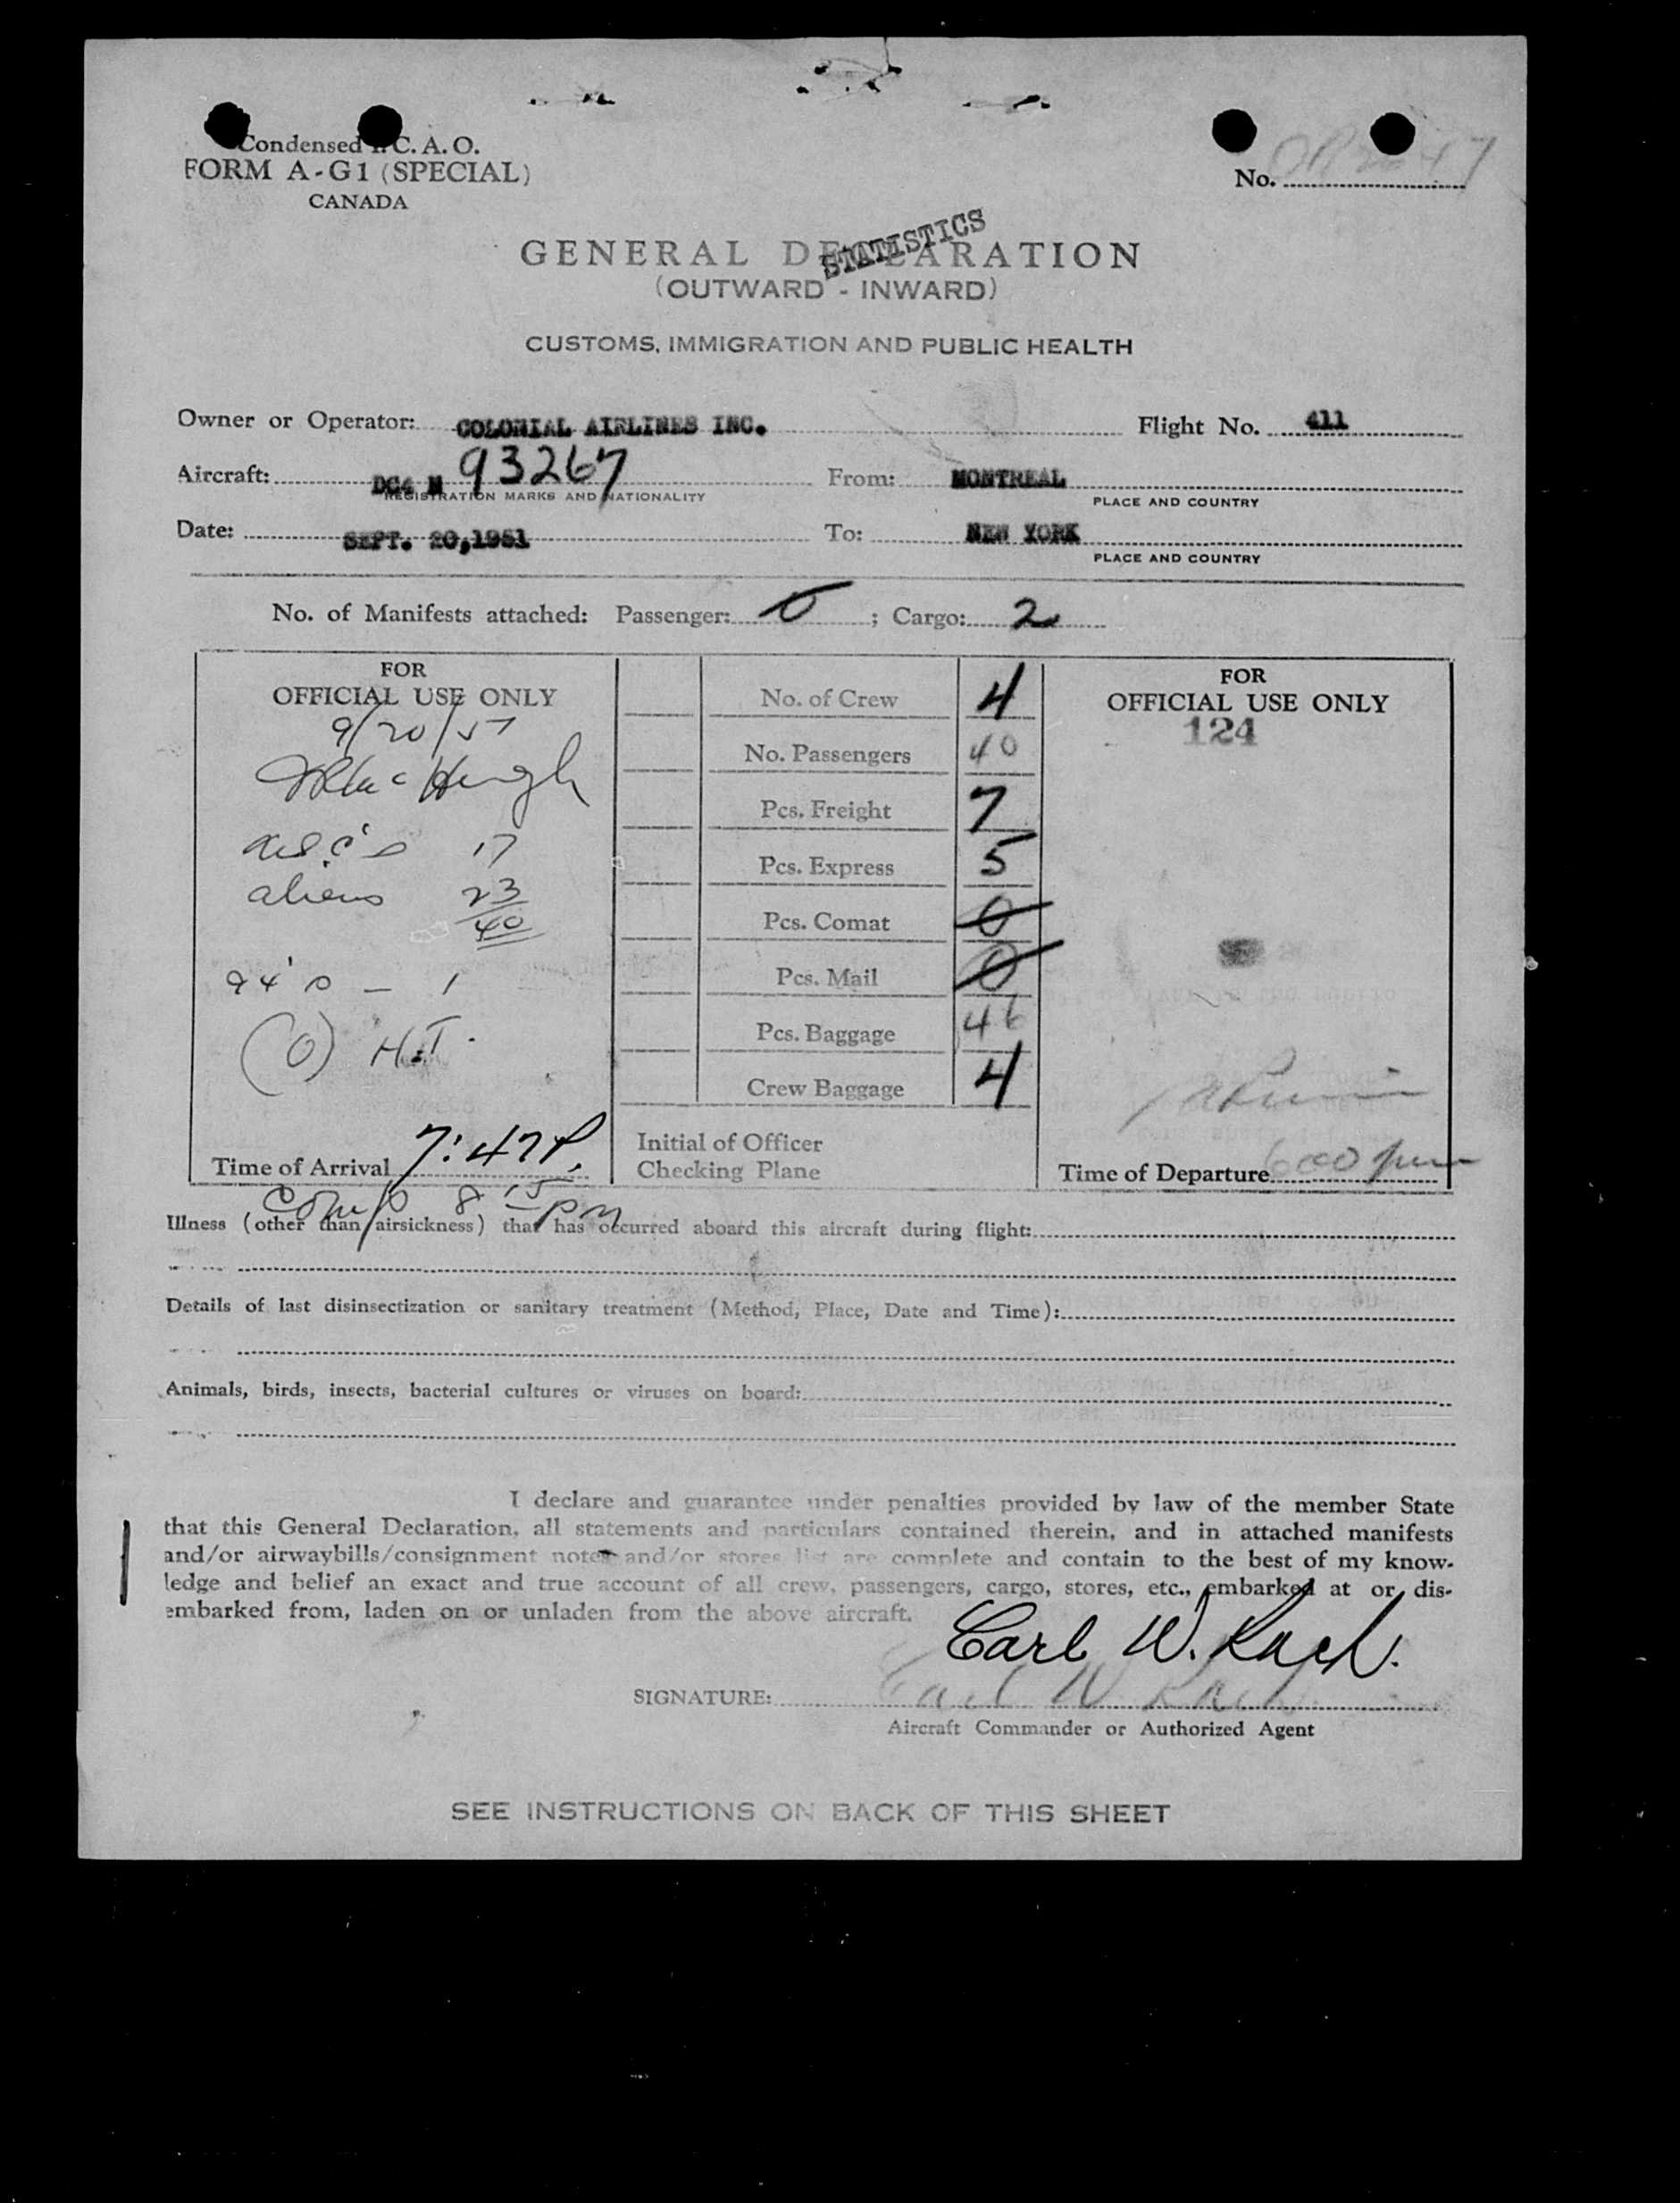 Condensed I. C. A. O.
FORM A-G1 (SPECIAL)
CANADA
No.
STATISTICS
GENERAL DECLARATION
(OUTWARD - INWARD)
CUSTOMS, IMMIGRATION AND PUBLIC HEALTH
Owner or Operator: COLONIAL AIRLINES INC. Flight No. 411
Aircraft: DC4 N 93267 From: MONTREAL
REGISTRATION MARKS AND NATIONALITY PLACE AND COUNTRY
Date: SEPT. 20,1951 To: NEW YORK
PLACE AND COUNTRY
No. of Manifests attached: Passenger: 0 ; Cargo: 2
FOR
OFFICIAL USE ONLY
9/20/51
17
aliens 23
40
94's - 1
(0) H.T.
Time of Arrival 7:47P.
Comp 8:15 pm
No. of Crew 4
No. Passengers 40
Pcs. Freight 7
Pcs. Express 5
Pcs. Comat 0
Pcs. Mail 0
Pcs. Baggage 46
Crew Baggage 4
Initial of Officer
Checking Plane
FOR
OFFICIAL USE ONLY
124
Time of Departure 6:00 pm
Illness (other than airsickness) that has occurred aboard this aircraft during flight:
Details of last disinsectization or sanitary treatment (Method, Place, Date and Time):
Animals, birds, insects, bacterial cultures or viruses on board:
I declare and guarantee under penalties provided by law of the member State
that this General Declaration, all statements and particulars contained therein, and in attached manifests
and/or airwaybills/consignment notes and/or stores list are complete and contain to the best of my know-
ledge and belief an exact and true account of all crew, passengers, cargo, stores, etc., embarked at or dis-
embarked from, laden on or unladen from the above aircraft.
Carl W.
SIGNATURE: Carl W
Aircraft Commander or Authorized Agent
SEE INSTRUCTIONS ON BACK OF THIS SHEET